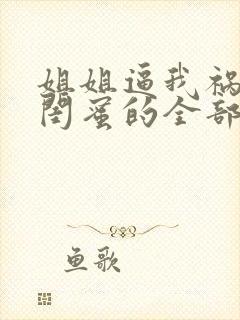 姐姐逼我祸
闺蜜的全部
鱼歌